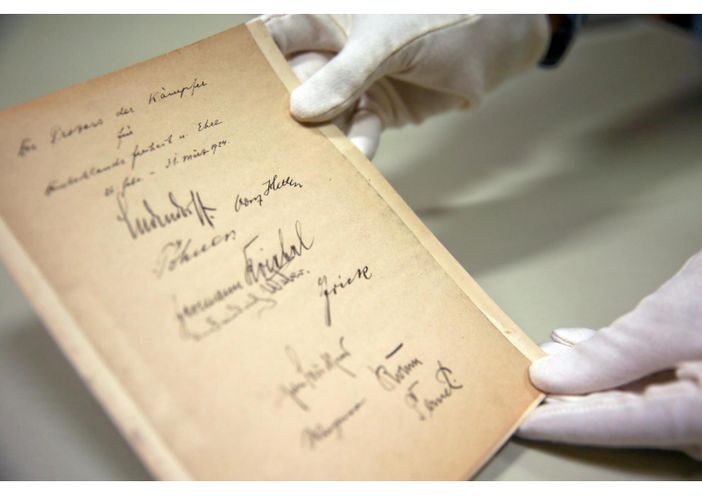 Der Prozess der Kämpfer
für
Deutschlands Freiheit u. Ehre
26. Febr. – 31. März 1924.
Ludendorff. Adolf Hitler
Pöhner.
Hermann Kriebel
Weber.
Frick
Wagner Röhm
Pernet